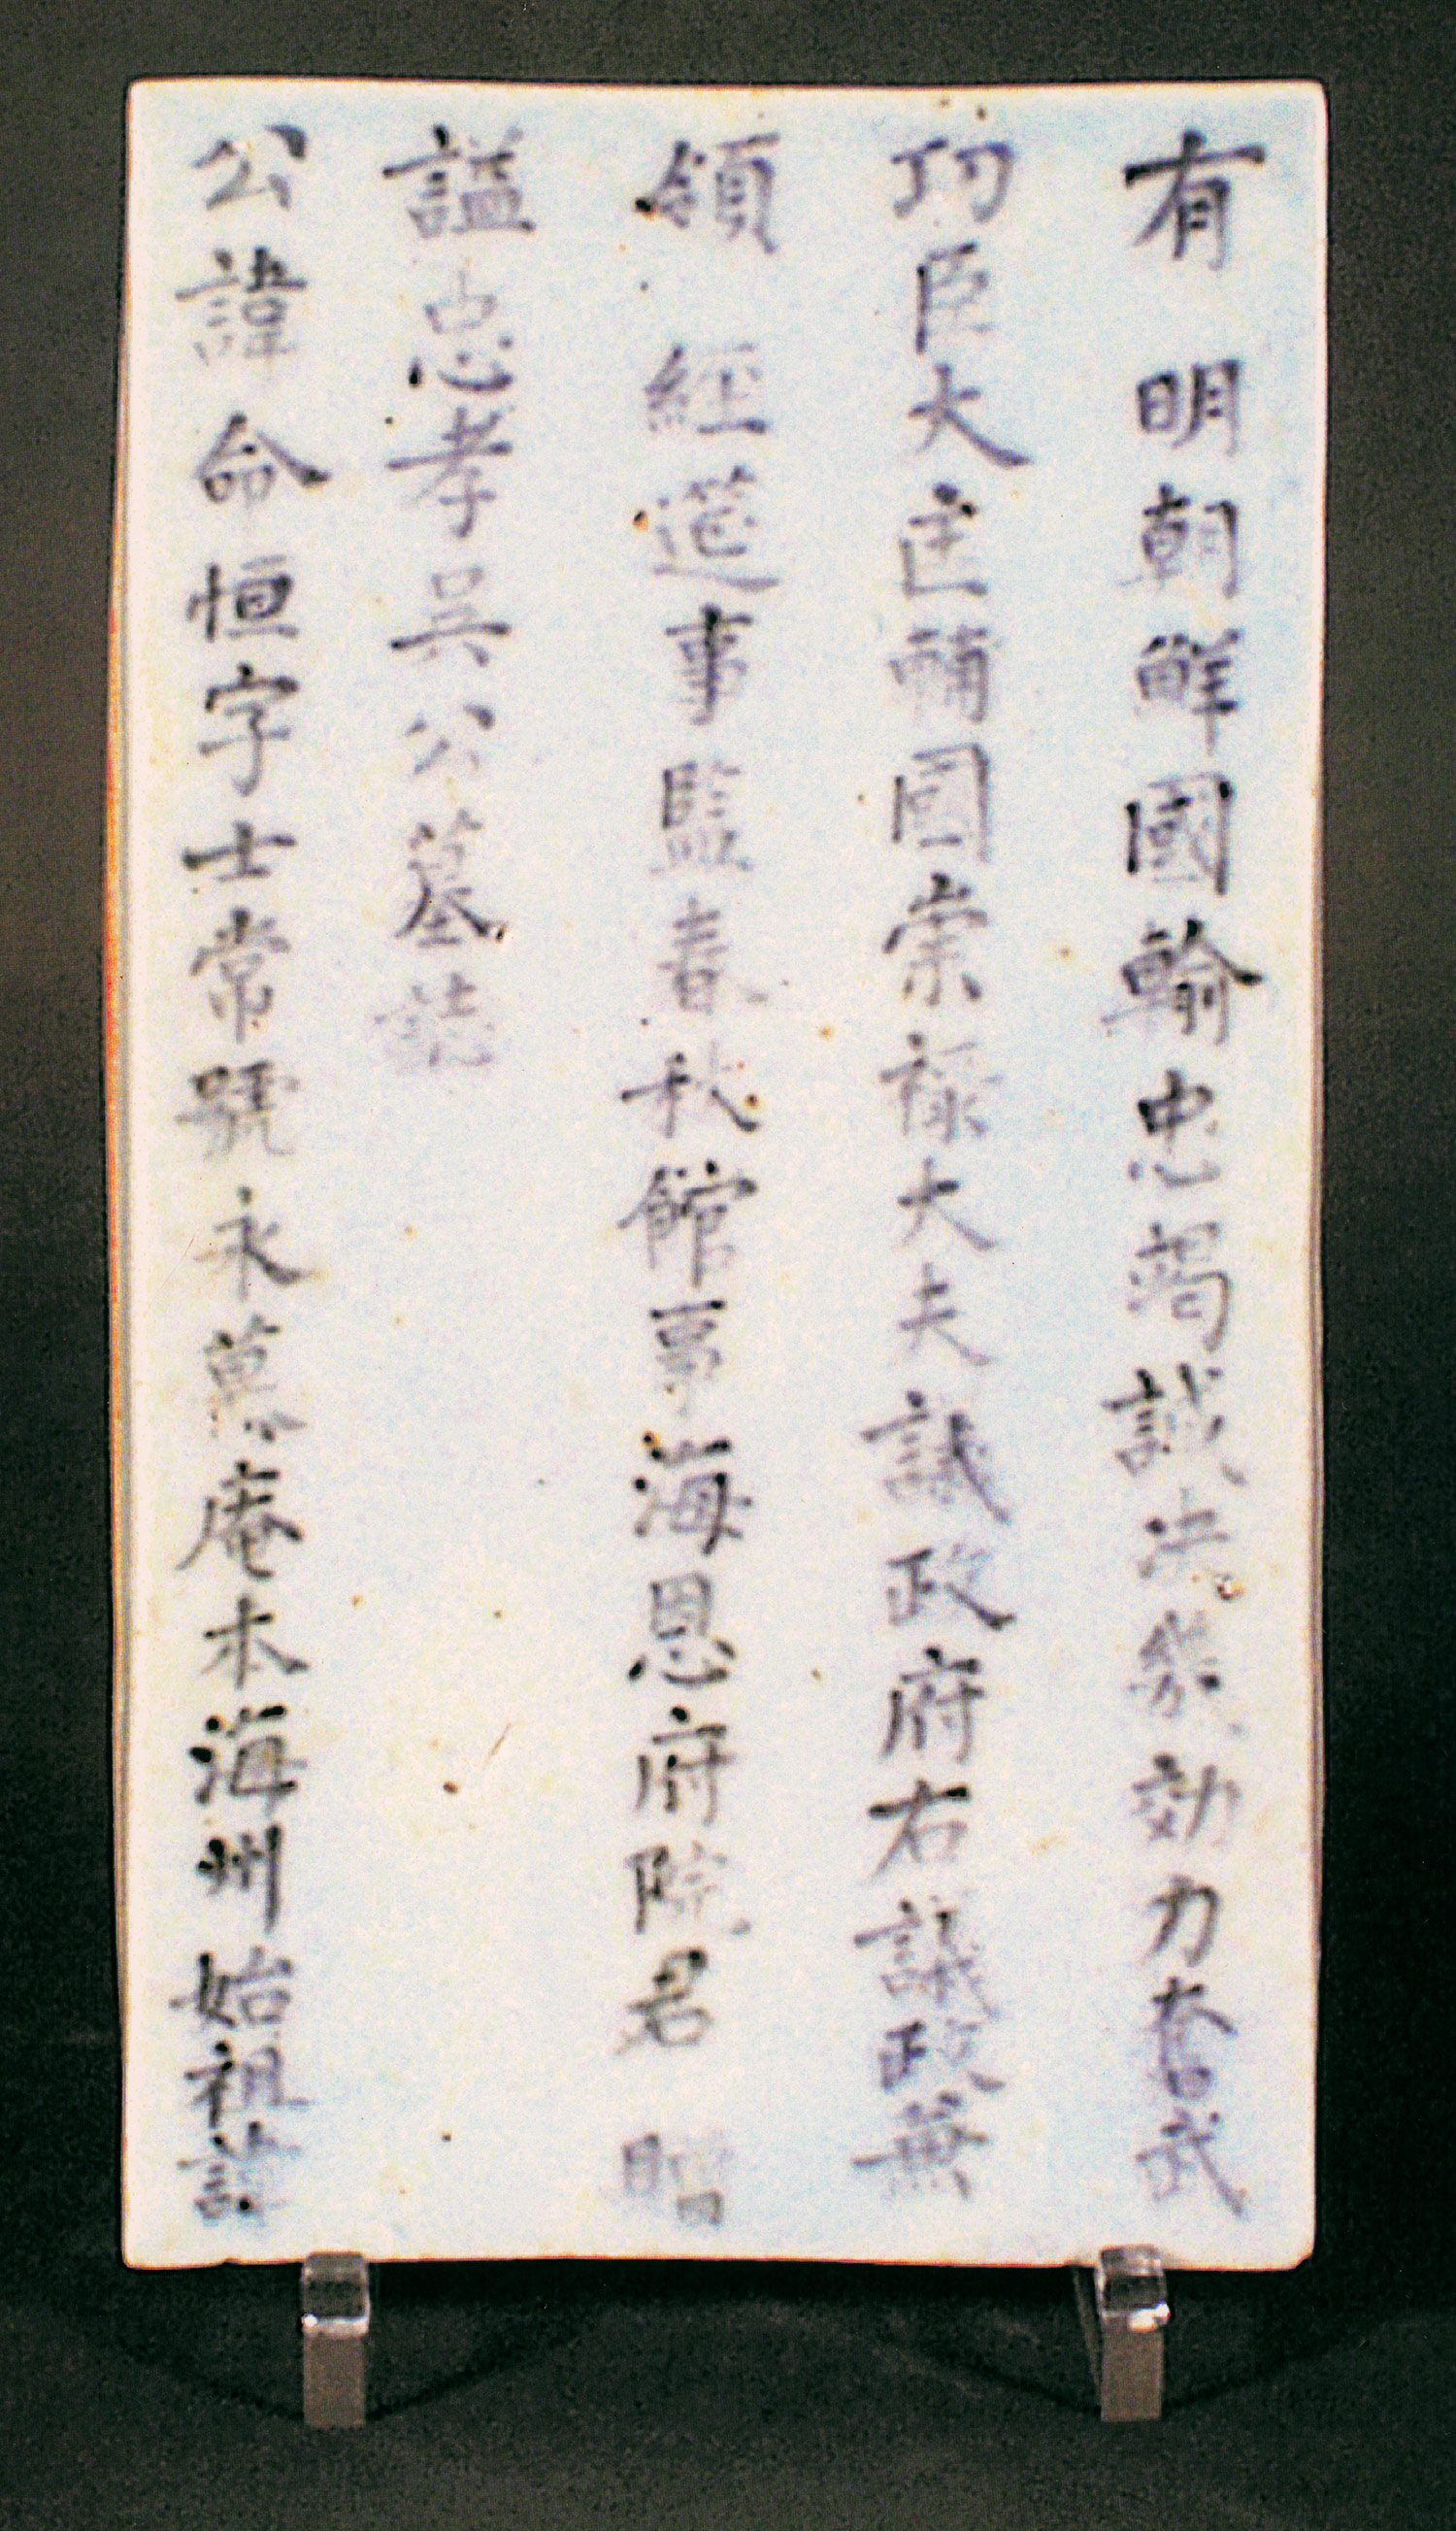 有 明朝鮮國輸忠竭誠決幾効力奮武
功臣大匡輔國崇祿大夫議政府右議政兼
領 經筵事監春秋館事海恩府院君 贈
謚忠孝吳公墓誌
公諱命恒字士常號永慕庵本海州始祖諱